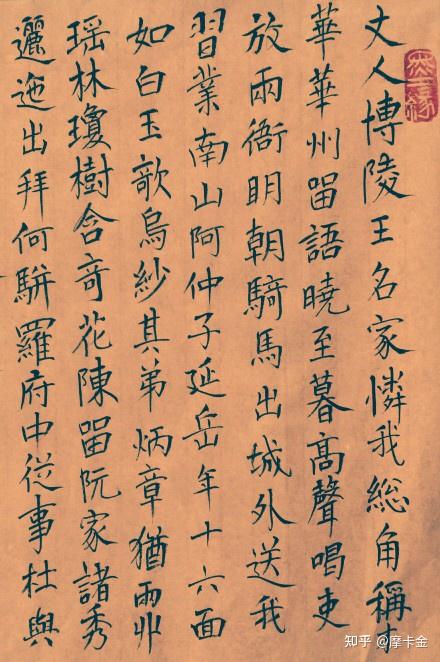 丈人博陵王名家憐我総角稱才
華華州畱語曉至暮高聲唱吏
放兩衙眀朝騎馬出城外送我
習業南山阿仲子延岳年十六面
如白玉欹烏紗其弟炳章猶兩丱
瑶林瓊樹含竒花陳畱阮家諸秀
邐迤出拜何駢羅府中從事杜與
知乎 @摩卡金